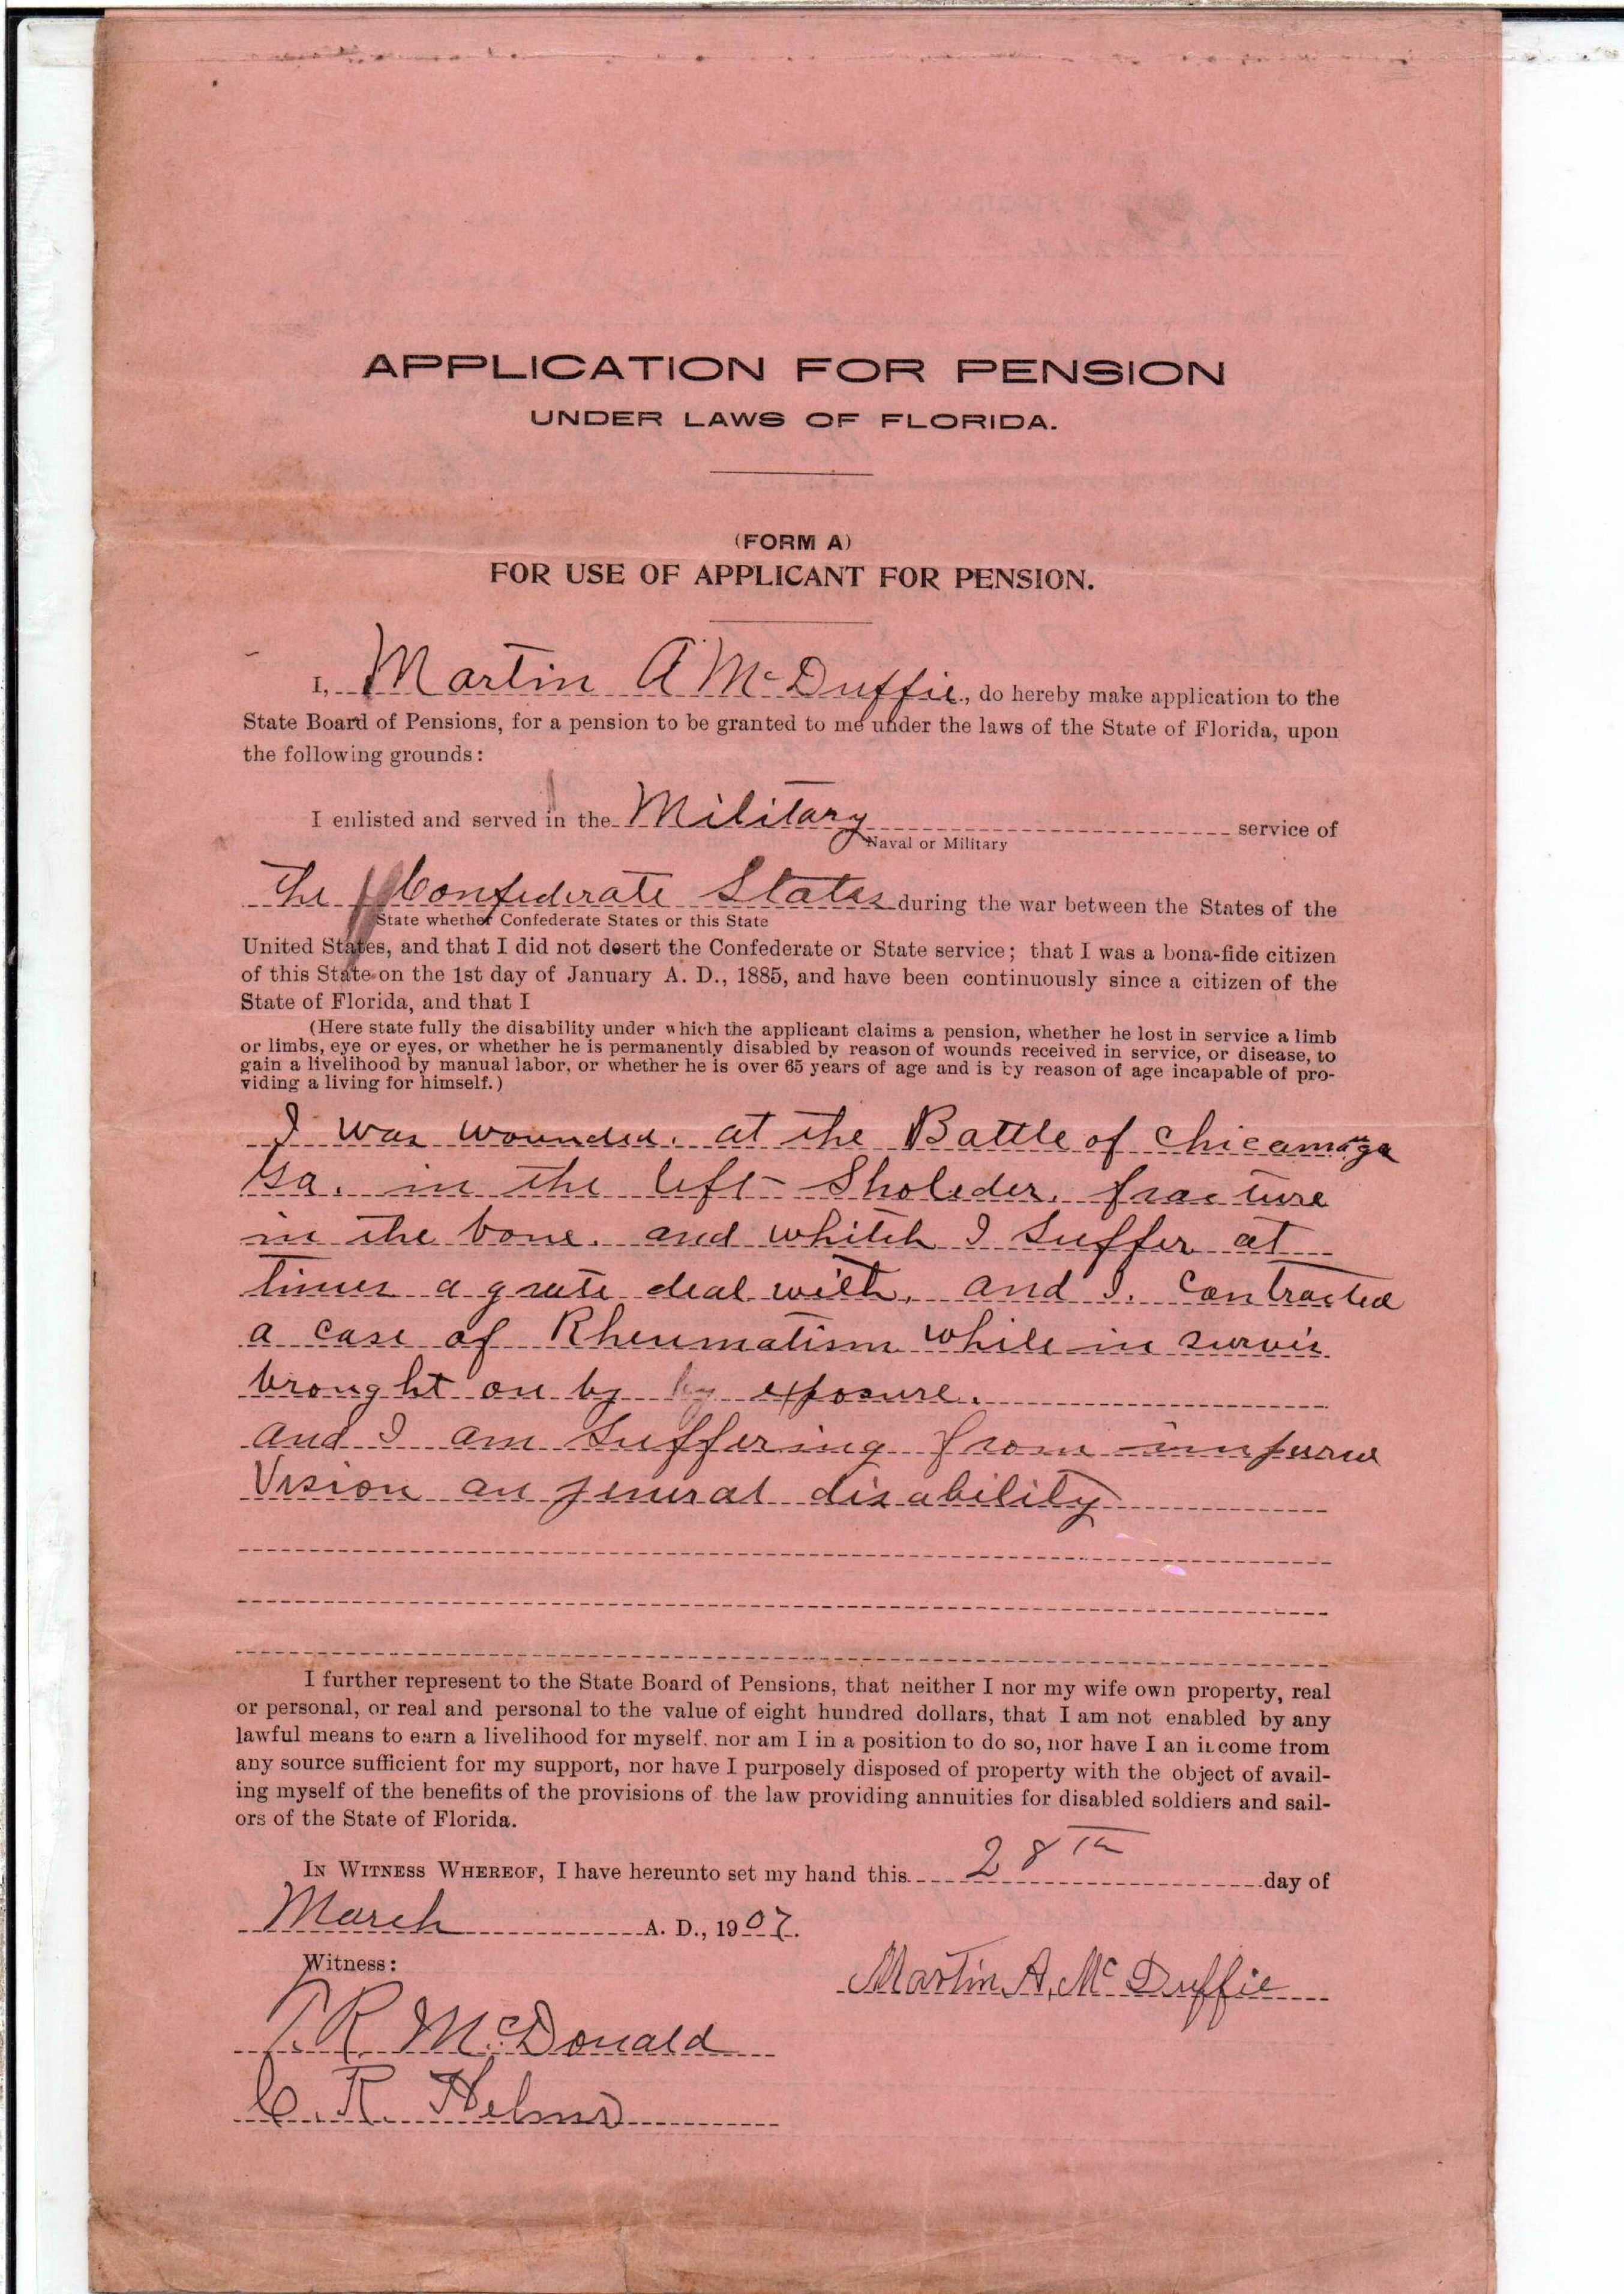 APPLICATION FOR PENSION
UNDER LAWS OF FLORIDA.
(FORM A)
FOR USE OF APPLICANT FOR PENSION.
I, Martin A McDuffie, do hereby make application to the
State Board of Pensions, for a pension to be granted to me under the laws of the State of Florida, upon
the following grounds:
I enlisted and served in the Military service of
Naval or Military
The Confederate States during the war between the States of the
State whether Confederate States or this State
United States, and that I did not desert the Confederate or State service; that I was a bona-fide citizen
of this State on the 1st day of January A. D., 1885, and have been continuously since a citizen of the
State of Florida, and that I
(Here state fully the disability under which the applicant claims a pension, whether he lost in service a limb
or limbs, eye or eyes, or whether he is permanently disabled by reason of wounds received in service, or disease, to
gain a livelihood by manual labor, or whether he is over 65 years of age and is by reason of age incapable of pro-
viding a living for himself.)
I was wounded. at the Battle of Chicamaga
Ga. in the left Sholeder. fracture
in the bone. and whitch I suffer at
times a grate deal with. and I. Contracted
a case of Rheumatism while in survis
brought on by by exposure.
and I am suffering from
Vision an jeneral disability
I further represent to the State Board of Pensions, that neither I nor my wife own property, real
or personal, or real and personal to the value of eight hundred dollars, that I am not enabled by any
lawful means to earn a livelihood for myself. nor am I in a position to do so, nor have I an income from
any source sufficient for my support, nor have I purposely disposed of property with the object of avail-
ing myself of the benefits of the provisions of the law providing annuities for disabled soldiers and sail-
ors of the State of Florida.
IN WITNESS WHEREOF, I have hereunto set my hand this 28th day of
March A. D., 1907.
Witness:
Martin A. McDuffie
T. R. McDonald
C. R. Helms